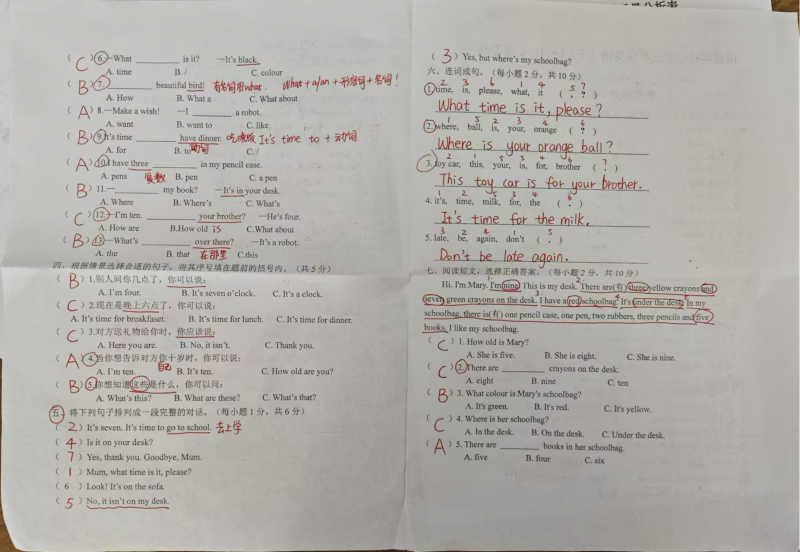 (C) 6.—What ________ is it? —It's black.
A. time B. / C. colour
(B) 7. ________ beautiful bird! 有名词用what. What+a/an+形容词+名词!
A. How B. What a C. What about
(A) 8.—Make a wish! —I ________ a robot.
A. want B. want to C. like
(B) 9. It's time ________ have dinner. 吃晚饭 It's time to + 动词
A. for B. to 动词 C. /
(A) 10. I have three ________ in my pencil case.
A. pens 复数 B. pen C. a pen
(B) 11.—________ my book? —It's in your desk.
A. Where B. Where's C. What's
(C) 12.—I'm ten. ________ your brother? —He's four.
A. How are B.How old is C.What about
(B) 13.—What's ________ over there? —It's a robot.
A. the B. that 在那里 C.this
四、根据情景选择合适的句子，将其序号填在题前的括号内。（共5分）
(B) 1.别人问你几点了，你可以说：
A. I'm four. B. It's seven o'clock. C. It's a clock.
(C) 2.现在是晚上六点了，你可以说：
A. It's time for breakfast. B. It's time for lunch. C. It's time for dinner.
(C) 3.对方送礼物给你时，你应该说：
A. Here you are. B. No, it isn't. C. Thank you.
(A) 4.当你想告诉对方你十岁时，你可以说：
A. I'm ten. 自己 B. It's ten. C. How old are you?
(B) 5.你想知道这些是什么，你可以问：
A. What's this? B. What are these? C. What's that?
五、将下列句子排列成一段完整的对话。（每小题1分，共6分）
(2) It's seven. It's time to go to school. 去上学
(4) Is it on your desk?
(7) Yes, thank you. Goodbye, Mum.
(1) Mum, what time is it, please?
(6) Look! It's on the sofa.
(5) No, it isn't on my desk.
(3) Yes, but where's my schoolbag?
六、连词成句。（每小题2分，共10分）
2 3 6 1 4 5 ?
1. time, is, please, what, it ( ? )
What time is it, please?
1 5 2 3 4 6
2. where, ball, is, your, orange ( ? )
Where is your orange ball?
2 1 5 3 4 6 7
3. toy car, this, your, is, for, brother ( ? )
This toy car is for your brother.
1 2 5 3 4 6
4. it's, time, milk, for, the ( . )
It's time for the milk.
3 2 4 1 5
5. late, be, again, don't ( . )
Don't be late again.
七、阅读短文，选择正确答案。（每小题2分，共10分）
Hi. I'm Mary. I'm nine. This is my desk. There are(有) three yellow crayons and
seven green crayons on the desk. I have a red schoolbag. It's under the desk. In my
schoolbag, there is(有) one pencil case, one pen, two rubbers, three pencils and five
books. I like my schoolbag.
(C) 1. How old is Mary?
A. She is five. B. She is eight. C. She is nine.
(C) 2. There are ________ crayons on the desk.
A. eight B. nine C. ten
(B) 3. What colour is Mary's schoolbag?
A. It's green. B. It's red. C. It's yellow.
(C) 4. Where is her schoolbag?
A. In the desk. B. On the desk. C. Under the desk.
(A) 5. There are ________ books in her schoolbag.
A. five B. four C. six